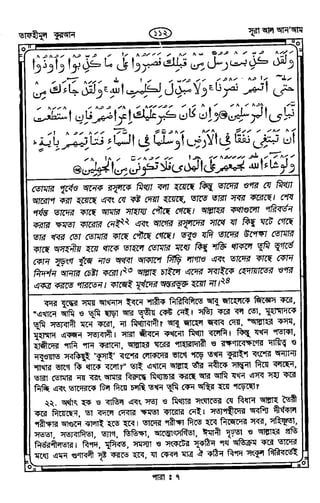 তাফহীমুল কুরআন
১১২
সূরা আল আন'আম
وَلَقَدْ كُذِّبَتْ رُسُلٌ مِّنْ قَبْلِكَ فَصَبَرُوا عَلٰى مَا كُذِّبُوا وَاُوذُوا
حَتّٰى اَتٰىهُمْ نَصْرُنَا ۚ وَلَا مُبَدِّلَ لِكَلِمٰتِ اللّٰهِ ۚ وَلَقَدْ جَاءَكَ مِنْ
نَّبَاِى الْمُرْسَلِيْنَ ۞ وَاِنْ كَانَ كَبُرَ عَلَيْكَ اِعْرَاضُهُمْ فَاِنِ اسْتَطَعْتَ
اَنْ تَبْتَغِىَ نَفَقًا فِى الْاَرْضِ اَوْ سُلَّمًا فِى السَّمَاءِ فَتَاْتِيَهُمْ بِاٰيَةٍ ۚ
وَلَوْ شَاءَ اللّٰهُ لَجَمَعَهُمْ عَلَى الْهُدٰى فَلَا تَكُوْنَنَّ مِنَ الْجٰهِلِيْنَ ۞
তোমার পূর্বেও অনেক রসূলকে মিথ্যা বলা হয়েছে কিন্তু তাদের ওপর যে মিথ্যা
আরোপ করা হয়েছে এবং যে কষ্ট দেয়া হয়েছে, তাতে তারা সবর করেছে। শেষ
পর্যন্ত তাদের কাছে আমার সাহায্য পৌঁছে গেছে। আল্লাহর কথাগুলো পরিবর্তন
করার ক্ষমতা কারোর নেই২২ এবং আগের রসূলদের সাথে যা কিছু ঘটে গেছে
তার খবর তো তোমার কাছে পৌঁছে গেছে। তবুও যদি তাদের উপেক্ষা তোমার
কাছে অসহনীয় হয়ে থাকে তাহলে তোমার মধ্যে কিছু শক্তি থাকলে তুমি ভূগর্ভে
কোন সুড়ংগ খুঁজে নাও অথবা আকাশে সিঁড়ি লাগাও এবং তাদের কাছে কোন
নিদর্শন আনার চেষ্টা করো।২৩ আল্লাহ চাইলে এদের সবাইকে হেদায়াতের ওপর
একত্র করতে পারতেন। কাজেই মূর্খদের অন্তরভুক্ত হয়ো না।২৪
বদর যুদ্ধের সময় আখনাস ইবনে শারীক নিরিবিলিতে আবু জাহেলকে জিজ্ঞেস করে,
"এখানে আমি ও তুমি ছাড়া আর তৃতীয় কেউ নেই। সত্যি করে বল তো, মুহাম্মাদকে
তুমি সত্যবাদী মনে করো, না মিথ্যাবাদী? আবু জাহেল জবাব দেয়, "আল্লাহর কসম,
মুহাম্মাদ একজন সত্যবাদী। সারা জীবনে কখনো মিথ্যা বলেনি। কিন্তু যখন পতাকা,
হাজীদের পানি পান করানো, আল্লাহর ঘরের পাহারাদারী ও রক্ষণাবেক্ষণের দায়িত্ব ও
নবুওয়াত সবকিছুই 'কুসাই' বংশের লোকদের ভাগে পড়ে তখন কুরাইশ বংশের অন্যান্য
শাখার ভাগে কি থাকে বলো?" তাই এখানে আল্লাহ তাঁর নবীকে সান্ত্বনা দিয়ে বলছেন,
তারা তোমার নয় বরং আমার বিরুদ্ধে মিথ্যাচার করছে আর আমি যখন এসব সহ্য করে
নিচ্ছি এবং তাদেরকে ঢিল দিয়ে চলছি তখন তুমি কেন অস্থির হয়ে পড়েছো?
২২. অর্থাৎ হক ও বাতিল এবং সত্য ও মিথ্যার সংঘাতের যে বিধান আল্লাহ তৈরী
করে দিয়েছেন, তা বদলে দেবার ক্ষমতা কারোর নেই। সত্যপন্থীদের অবশ্যি দীর্ঘকাল
পরীক্ষার আগুনে ঝালাই হতে হবে। তাদের পরীক্ষা দিতে হবে নিজেদের সবর, সহিষ্ণুতা,
সততা, সত্যবাদিতা, ত্যাগ, তিতিক্ষা, আত্মোৎসর্গিতা, ঈমানী দৃঢ়তা ও আল্লাহর প্রতি
নির্ভরশীলতার। বিপদ, মুসিবত, সমস্যা ও সংকটের সুকঠিন পথ অতিক্রম করে তাদের
মধ্যে এমন গুণাবলী সৃষ্টি করতে হবে, যা কেবল মাত্র ঐ কঠিন বিপদ সংকুল গিরিবর্তেই
পারা : ৭